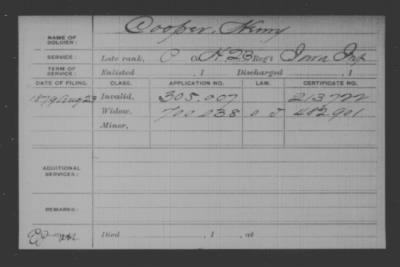 NAME OF SOLDIER: Cooper, Henry
SERVICE: Late rank, Co. K. 23 Reg't Iowa Inf
TERM OF SERVICE: Enlisted , 1 Discharged , 1
DATE OF FILING. CLASS. APPLICATION NO. LAW. CERTIFICATE NO.
1879 Aug 23 Invalid, 305.007 213722
Widow, 700.038 482901
Minor,
ADDITIONAL SERVICES:
REMARKS:
Died , 1 , at